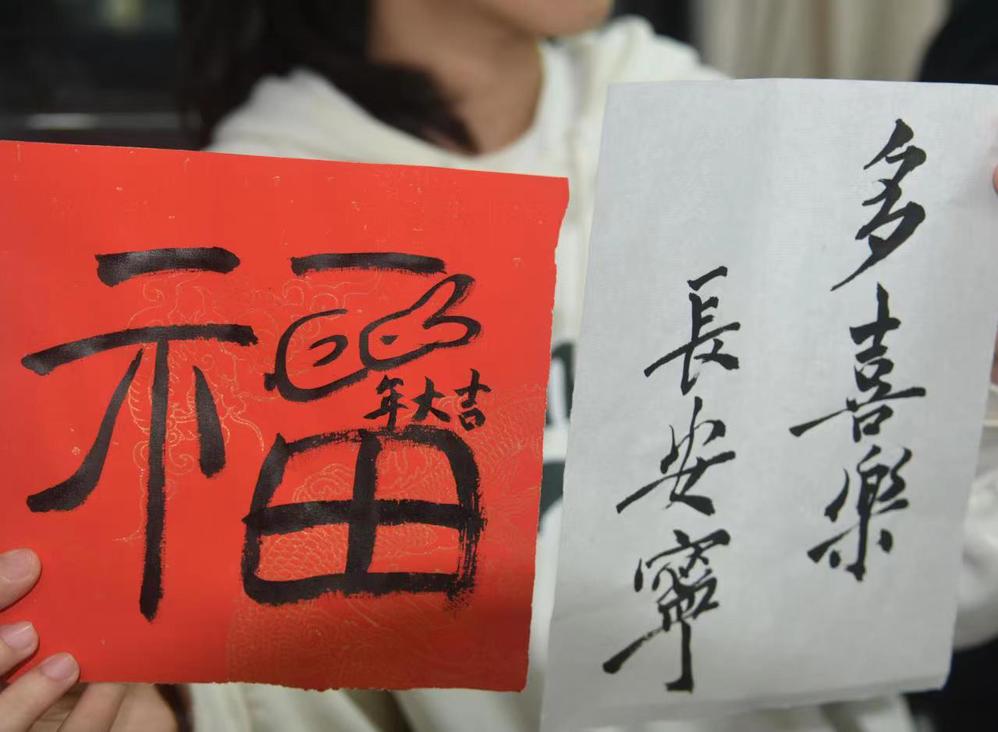 福
年大吉
多喜樂
長安寧